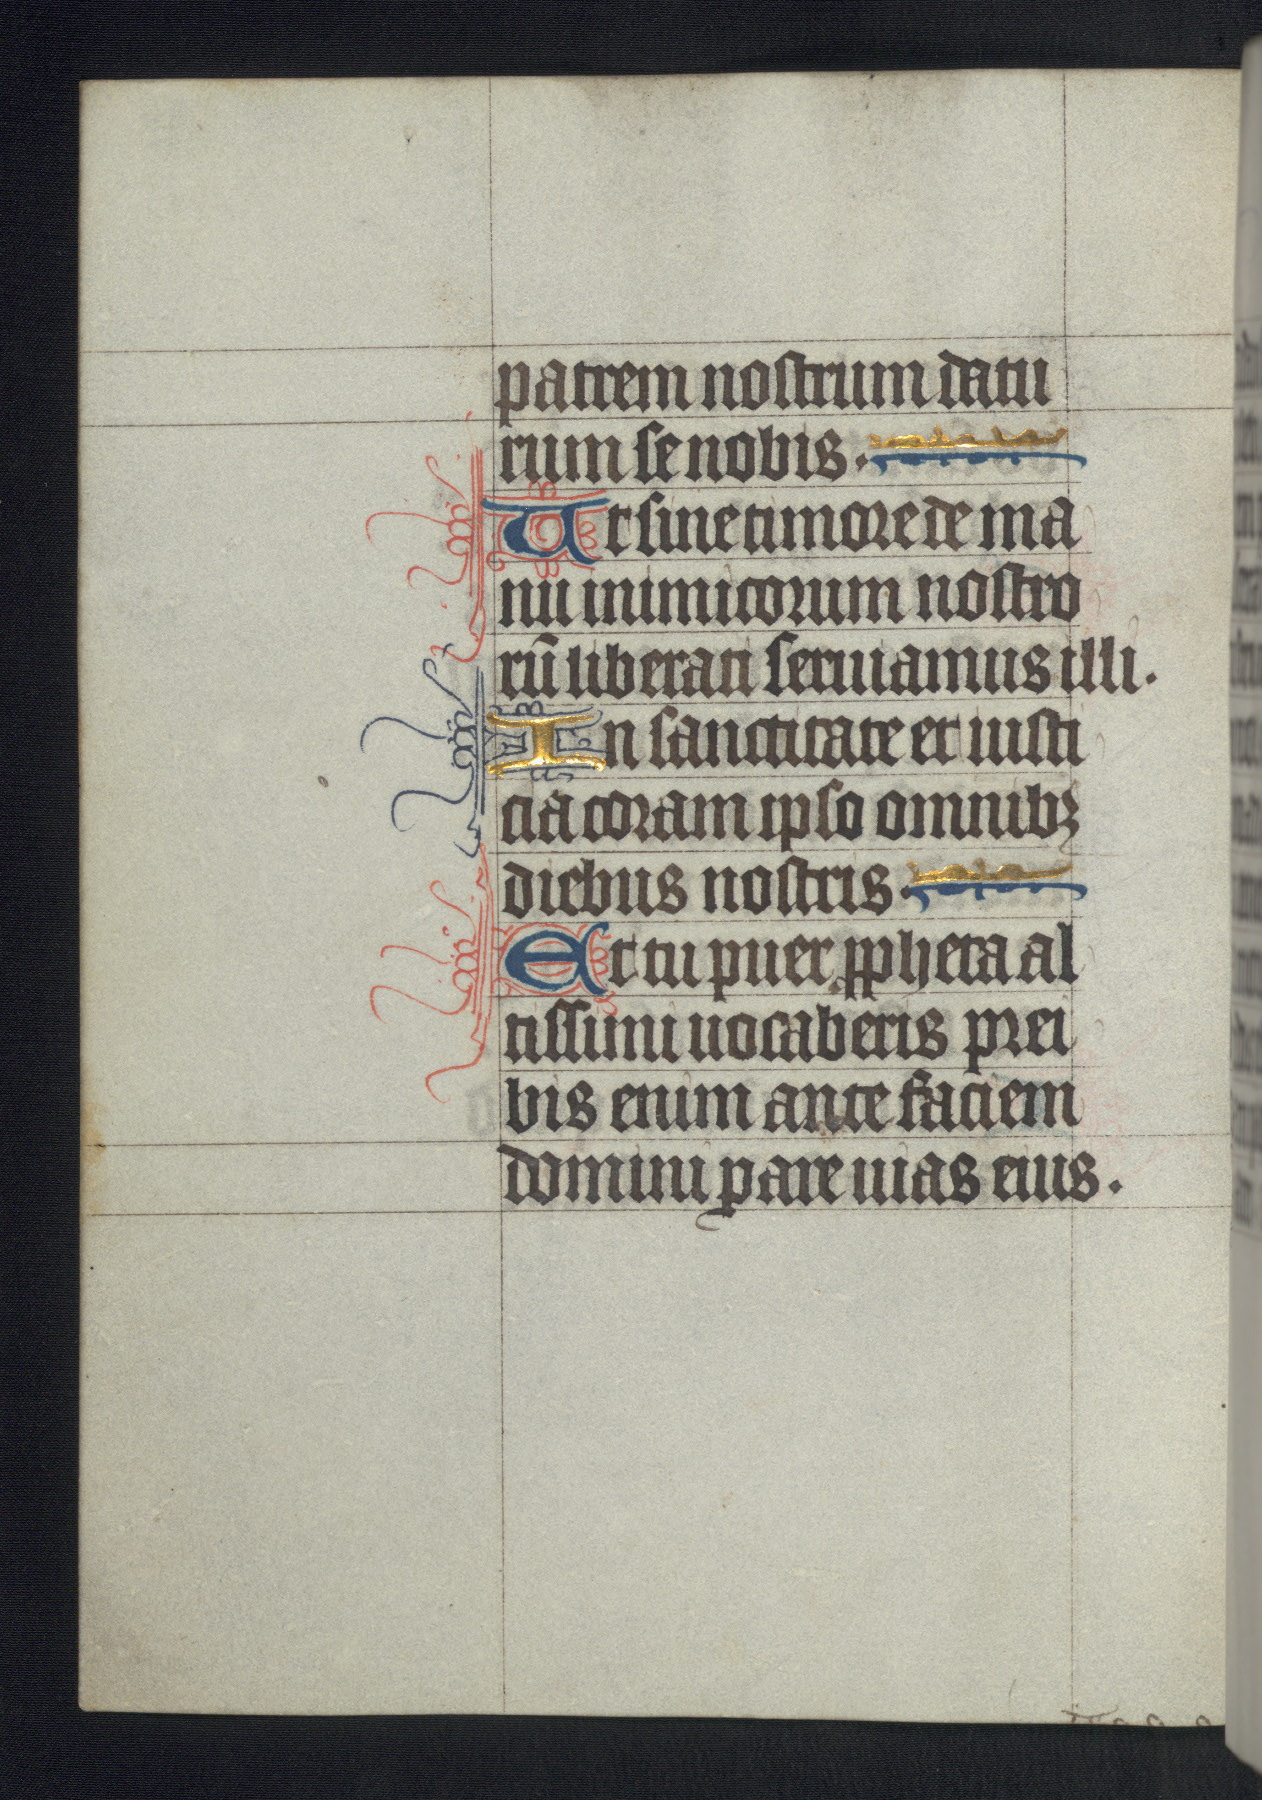 patrem nostrum datu
rum se nobis.
Ut sine timore de ma
nu inimicorum nostro
rū liberati seruiamus illi.
In sanctitate et iusti
cia coram ipso omnibꝫ
diebus nostris.
Et tu puer ꝓpheta al
tissimi uocaberis prei
bis enim ante faciem
domini ꝑare uias eius.